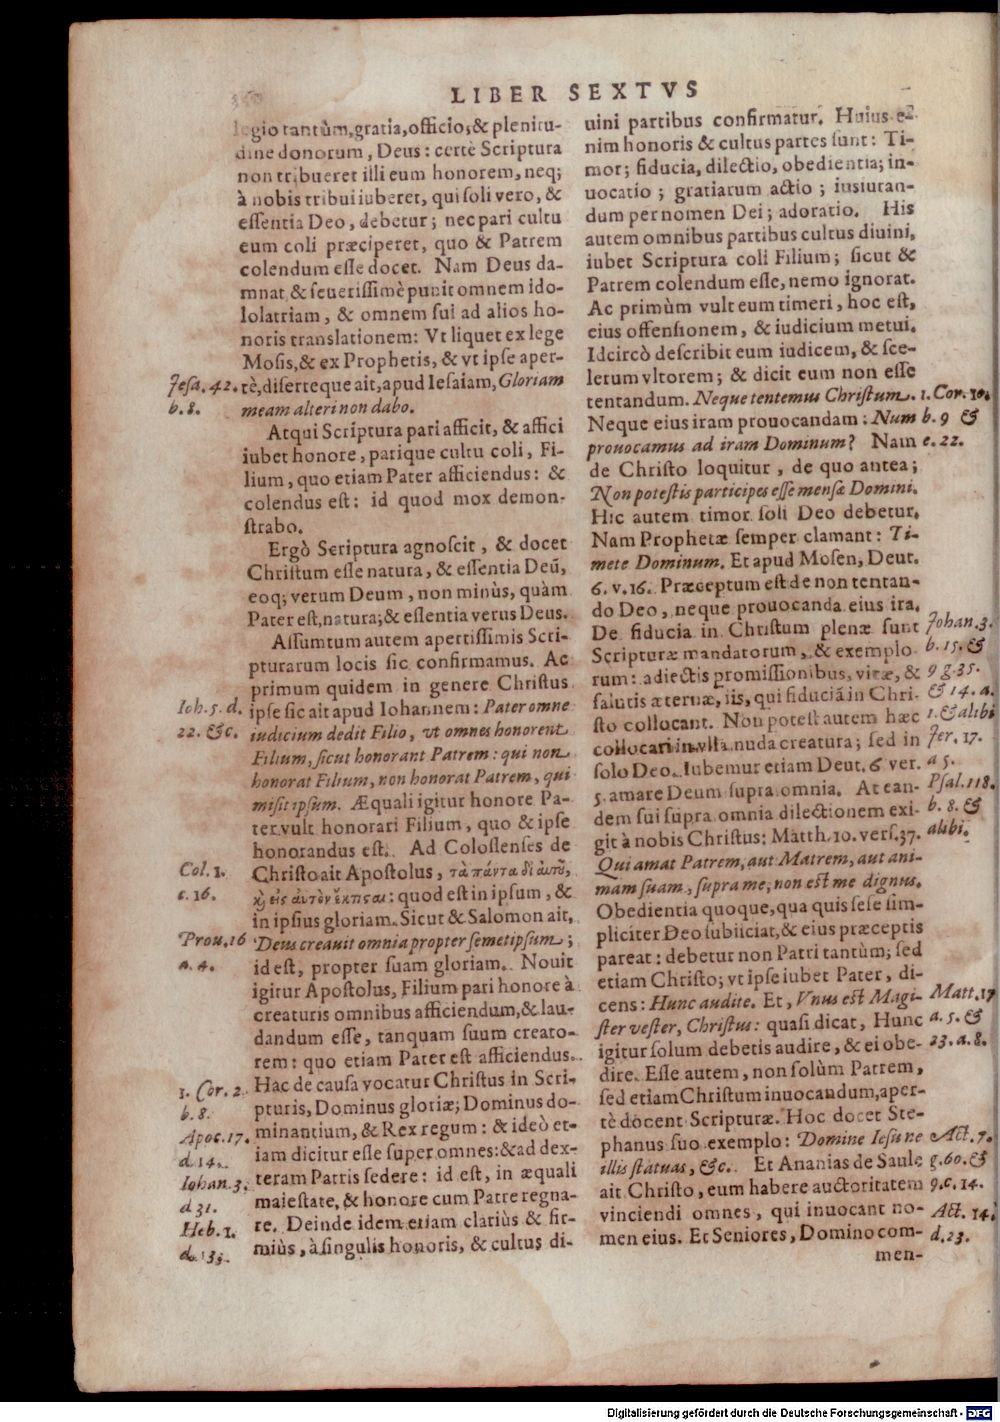 350
LIBER SEXTVS
legio tantùm, gratia, officio, & plenitu-
dine donorum, Deus: certè Scriptura
non tribueret illi eum honorem, neq;
à nobis tribui iuberet, qui soli vero, &
essentia Deo, debetur; nec pari cultu
eum coli præciperet, quo & Patrem
colendum esse docet. Nam Deus da-
mnat & seuerissimè punit omnem ido-
lolatriam, & omnem sui ad alios ho-
noris translationem: Vt liquet ex lege
Mosis, & ex Prophetis, & vt ipse aper-
tè, diserteque ait, apud Iesaiam, Gloriam
meam alteri non dabo.
Atqui Scriptura pari afficit, & affici
iubet honore, parique cultu coli, Fi-
lium, quo etiam Pater afficiendus: &
colendus est: id quod mox demon-
strabo.
Ergò Scriptura agnoscit, & docet
Christum esse natura, & essentia Deũ,
eoq; verum Deum, non minùs, quàm
Pater est, natura; & essentia verus Deus.
Assumtum autem apertissimis Scri-
pturarum locis sic confirmamus. Ac
primum quidem in genere Christus
ipse sic ait apud Iohannem: Pater omne
iudicium dedit Filio, vt omnes honorent
Filium, sicut honorant Patrem: qui non
honorat Filium, non honorat Patrem, qui
misit ipsum. Æquali igitur honore Pa-
ter vult honorari Filium, quo & ipse
honorandus est. Ad Colossenses de
Christo ait Apostolus, τὰ πάντα δἰ αυτοῦ,
κ̀ εἰς αυτὸν ἔκτισαι: quod est in ipsum, &
in ipsius gloriam. Sicut & Salomon ait,
Deus creauit omnia propter semetipsum;
id est, propter suam gloriam. Nouit
igitur Apostolus, Filium pari honore à
creaturis omnibus afficiendum, & lau-
dandum esse, tanquam suum creato-
rem: quo etiam Pater est afficiendus.
Hac de causa vocatur Christus in Scri-
pturis, Dominus gloriæ; Dominus do-
minantium, & Rex regum: & ideò et-
iam dicitur esse super omnes: & ad dex-
teram Patris sedere: id est, in æquali
maiestate, & honore cum Patre regna-
re. Deinde idem etiam clariùs & fir-
miùs, à singulis honoris, & cultus di-
Jesa. 42.
b. 8.
Ioh. 5. d.
22. &c.
Col. 1.
c. 16.
Prou. 16
a. 4.
1. Cor. 2.
b. 8.
Apoc. 17.
d 14.
Iohan. 3.
d 31.
Heb. 1.
d. 13.
uini partibus confirmatur. Huius e-
nim honoris & cultus partes sunt: Ti-
mor; fiducia, dilectio, obedientia; in-
uocatio; gratiarum actio; iusiuran-
dum per nomen Dei; adoratio. His
autem omnibus partibus cultus diuini,
iubet Scriptura coli Filium; sicut &
Patrem colendum esse, nemo ignorat.
Ac primùm vult eum timeri, hoc est,
eius offensionem, & iudicium metui.
Idcircò describit eum iudicem, & sce-
lerum vltorem; & dicit eum non esse
tentandum. Neque tentemus Christum.
Neque eius iram prouocandam: Num
prouocamus ad iram Dominum? Nam
de Christo loquitur, de quo antea;
Non potestis participes esse mensæ Domini.
Hic autem timor soli Deo debetur.
Nam Prophetæ semper clamant: Ti-
mete Dominum. Et apud Mosen, Deut.
6. v. 16. Præceptum est de non tentan-
do Deo, neque prouocanda eius ira.
De fiducia in Christum plenæ sunt
Scripturæ mandatorum, & exemplo
rum: adiectis promissionibus, vitæ, &
salutis æternæ, iis, qui fiduciã in Chri-
sto collocant. Non potest autem hæc
collocari in vlla nuda creatura; sed in
solo Deo. Iubemur etiam Deut. 6 ver.
5. amare Deum supra omnia. At ean-
dem sui supra omnia dilectionem exi-
git à nobis Christus: Matth. 10. vers. 37.
Qui amat Patrem, aut Matrem, aut ani-
mam suam, supra me, non est me dignus.
Obedientia quoque, qua quis sese sim-
pliciter Deo subiiciat, & eius præceptis
pareat: debetur non Patri tantùm; sed
etiam Christo; vt ipse iubet Pater, di-
cens: Hunc audite. Et, Vnus est Magi-
ster vester, Christus: quasi dicat, Hunc
igitur solum debetis audire, & ei obe-
dire. Esse autem, non solùm Patrem,
sed etiam Christum inuocandum, aper-
tè docent Scripturæ. Hoc docet Ste-
phanus suo exemplo: Domine Iesu ne
illis statuas, &c. Et Ananias de Saule
ait Christo, eum habere auctoritatem
vinciendi omnes, qui inuocant no-
men eius. Et Seniores, Domino com-
men-
1. Cor. 10.
b. 9 &
e. 22.
Johan. 3.
b. 15. &
9 g. 35.
& 14. a.
1. & alibi
Jer. 17.
a 5.
Psal. 118.
b. 8. &
alibi.
Matt. 17
a. 5. &
23. a. 8.
Act. 7.
g. 60. &
9. c. 14.
Act. 14.
d. 23.
Digitalisierung gefördert durch die Deutsche Forschungsgemeinschaft - DFG